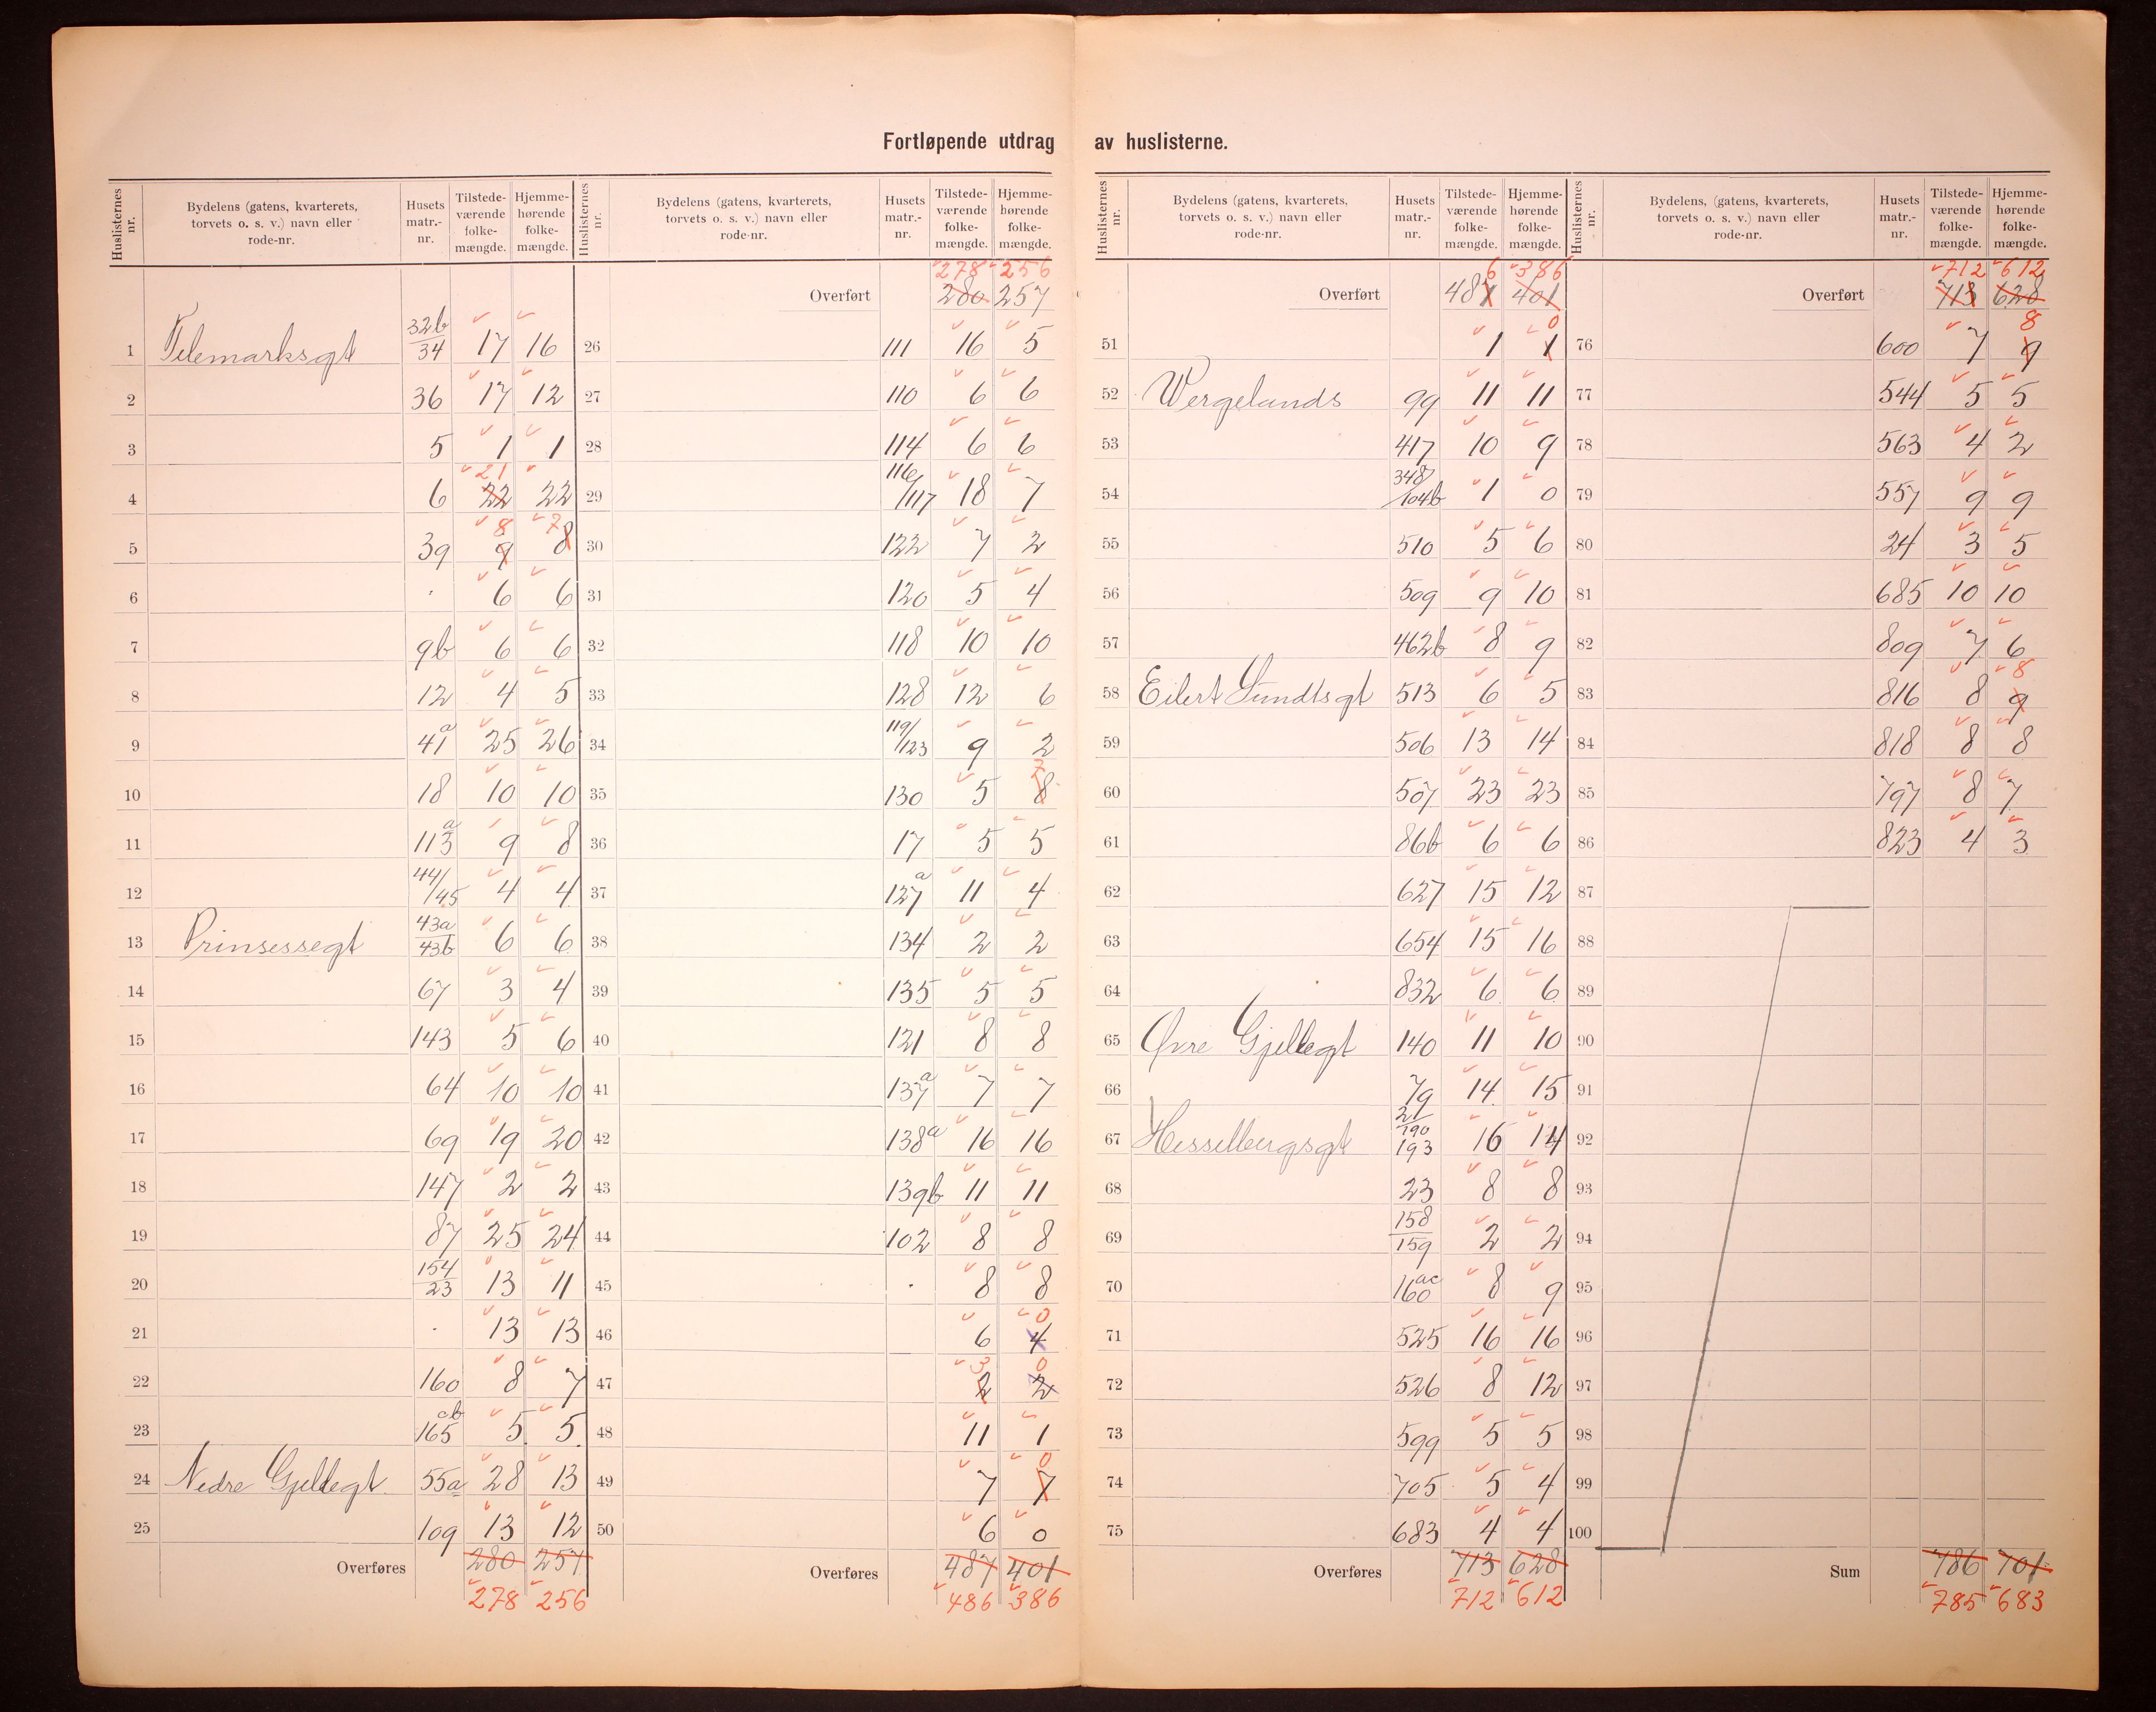 Fortløpende utdrag av huslisterne.
Huslisternes nr. | Bydelens (gatens, kvarterets, torvets o. s. v.) navn eller rode-nr. | Husets matr.-nr. | Tilstede-værende folke-mængde. | Hjemme-hørende folke-mængde.
1 Telemarksgt 32b/34 17 16
2 36 17 12
3 5 1 1
4 6 22 21 22
5 39 9 8 8 7
6 . 6 6
7 9b 6 6
8 12 4 5
9 41a 25 26
10 18 10 10
11 113a 9 8
12 44/145 4 4
13 Prinsessegt 43a/43b 6 6
14 67 3 4
15 143 5 6
16 64 10 10
17 69 19 20
18 147 2 2
19 87 25 24
20 154/23 13 11
21 . 13 13
22 160 8 7
23 165cb 5 5
24 Nedre Gjellegt 55a 28 13
25 109 13 12
Overføres 280 257
278 256
Huslisternes nr. | Bydelens (gatens, kvarterets, torvets o. s. v.) navn eller rode-nr. | Husets matr.-nr. | Tilstede-værende folke-mængde. | Hjemme-hørende folke-mængde.
278 256
Overført 280 257
26 111 16 5
27 110 6 6
28 114 6 6
29 116/117 18 7
30 122 7 2
31 120 5 4
32 118 10 10
33 128 12 6
34 119/123 9 2
35 130 5 8 7
36 17 5 5
37 127a 11 4
38 134 2 2
39 135 5 5
40 121 8 8
41 137a 7 7
42 138a 16 16
43 139b 11 11
44 102 8 8
45 . 8 8
46 6 4 0
47 2 3 2 0
48 11 1
49 7 7 0
50 6 0
Overføres 487 401
486 386
Huslisternes nr. | Bydelens (gatens, kvarterets, torvets o. s. v.) navn eller rode-nr. | Husets matr.-nr. | Tilstede-værende folke-mængde. | Hjemme-hørende folke-mængde.
6 386
Overført 487 401
51 1 1 0
52 Wergelands 99 11 11
53 417 10 9
54 348/104b 1 0
55 510 5 6
56 509 9 10
57 462b 8 9
58 Eilert Sundtsgt 513 6 5
59 506 13 14
60 507 23 23
61 86b 6 6
62 627 15 12
63 654 15 16
64 832 6 6
65 Øvre Gjellegt 140 11 10
66 79 14 15
67 Hesselbergsgt 21/190 193 16 14
68 23 8 8
69 158/159 2 2
70 160ac 8 9
71 525 16 16
72 526 8 12
73 599 5 5
74 705 5 4
75 683 4 4
Overføres 713 628
712 612
Huslisternes nr. | Bydelens, (gatens, kvarterets, torvets o. s. v.) navn eller rode-nr. | Husets matr.-nr. | Tilstede-værende folke-mængde. | Hjemme-hørende folke-mængde.
712 612
Overført 713 628
76 600 7 9 8
77 544 5 5
78 563 4 2
79 557 9 9
80 24 3 5
81 685 10 10
82 809 7 6
83 816 8 9 8
84 818 8 8
85 797 8 7
86 823 4 3
87
88
89
90
91
92
93
94
95
96
97
98
99
100
Sum 786 701
785 683